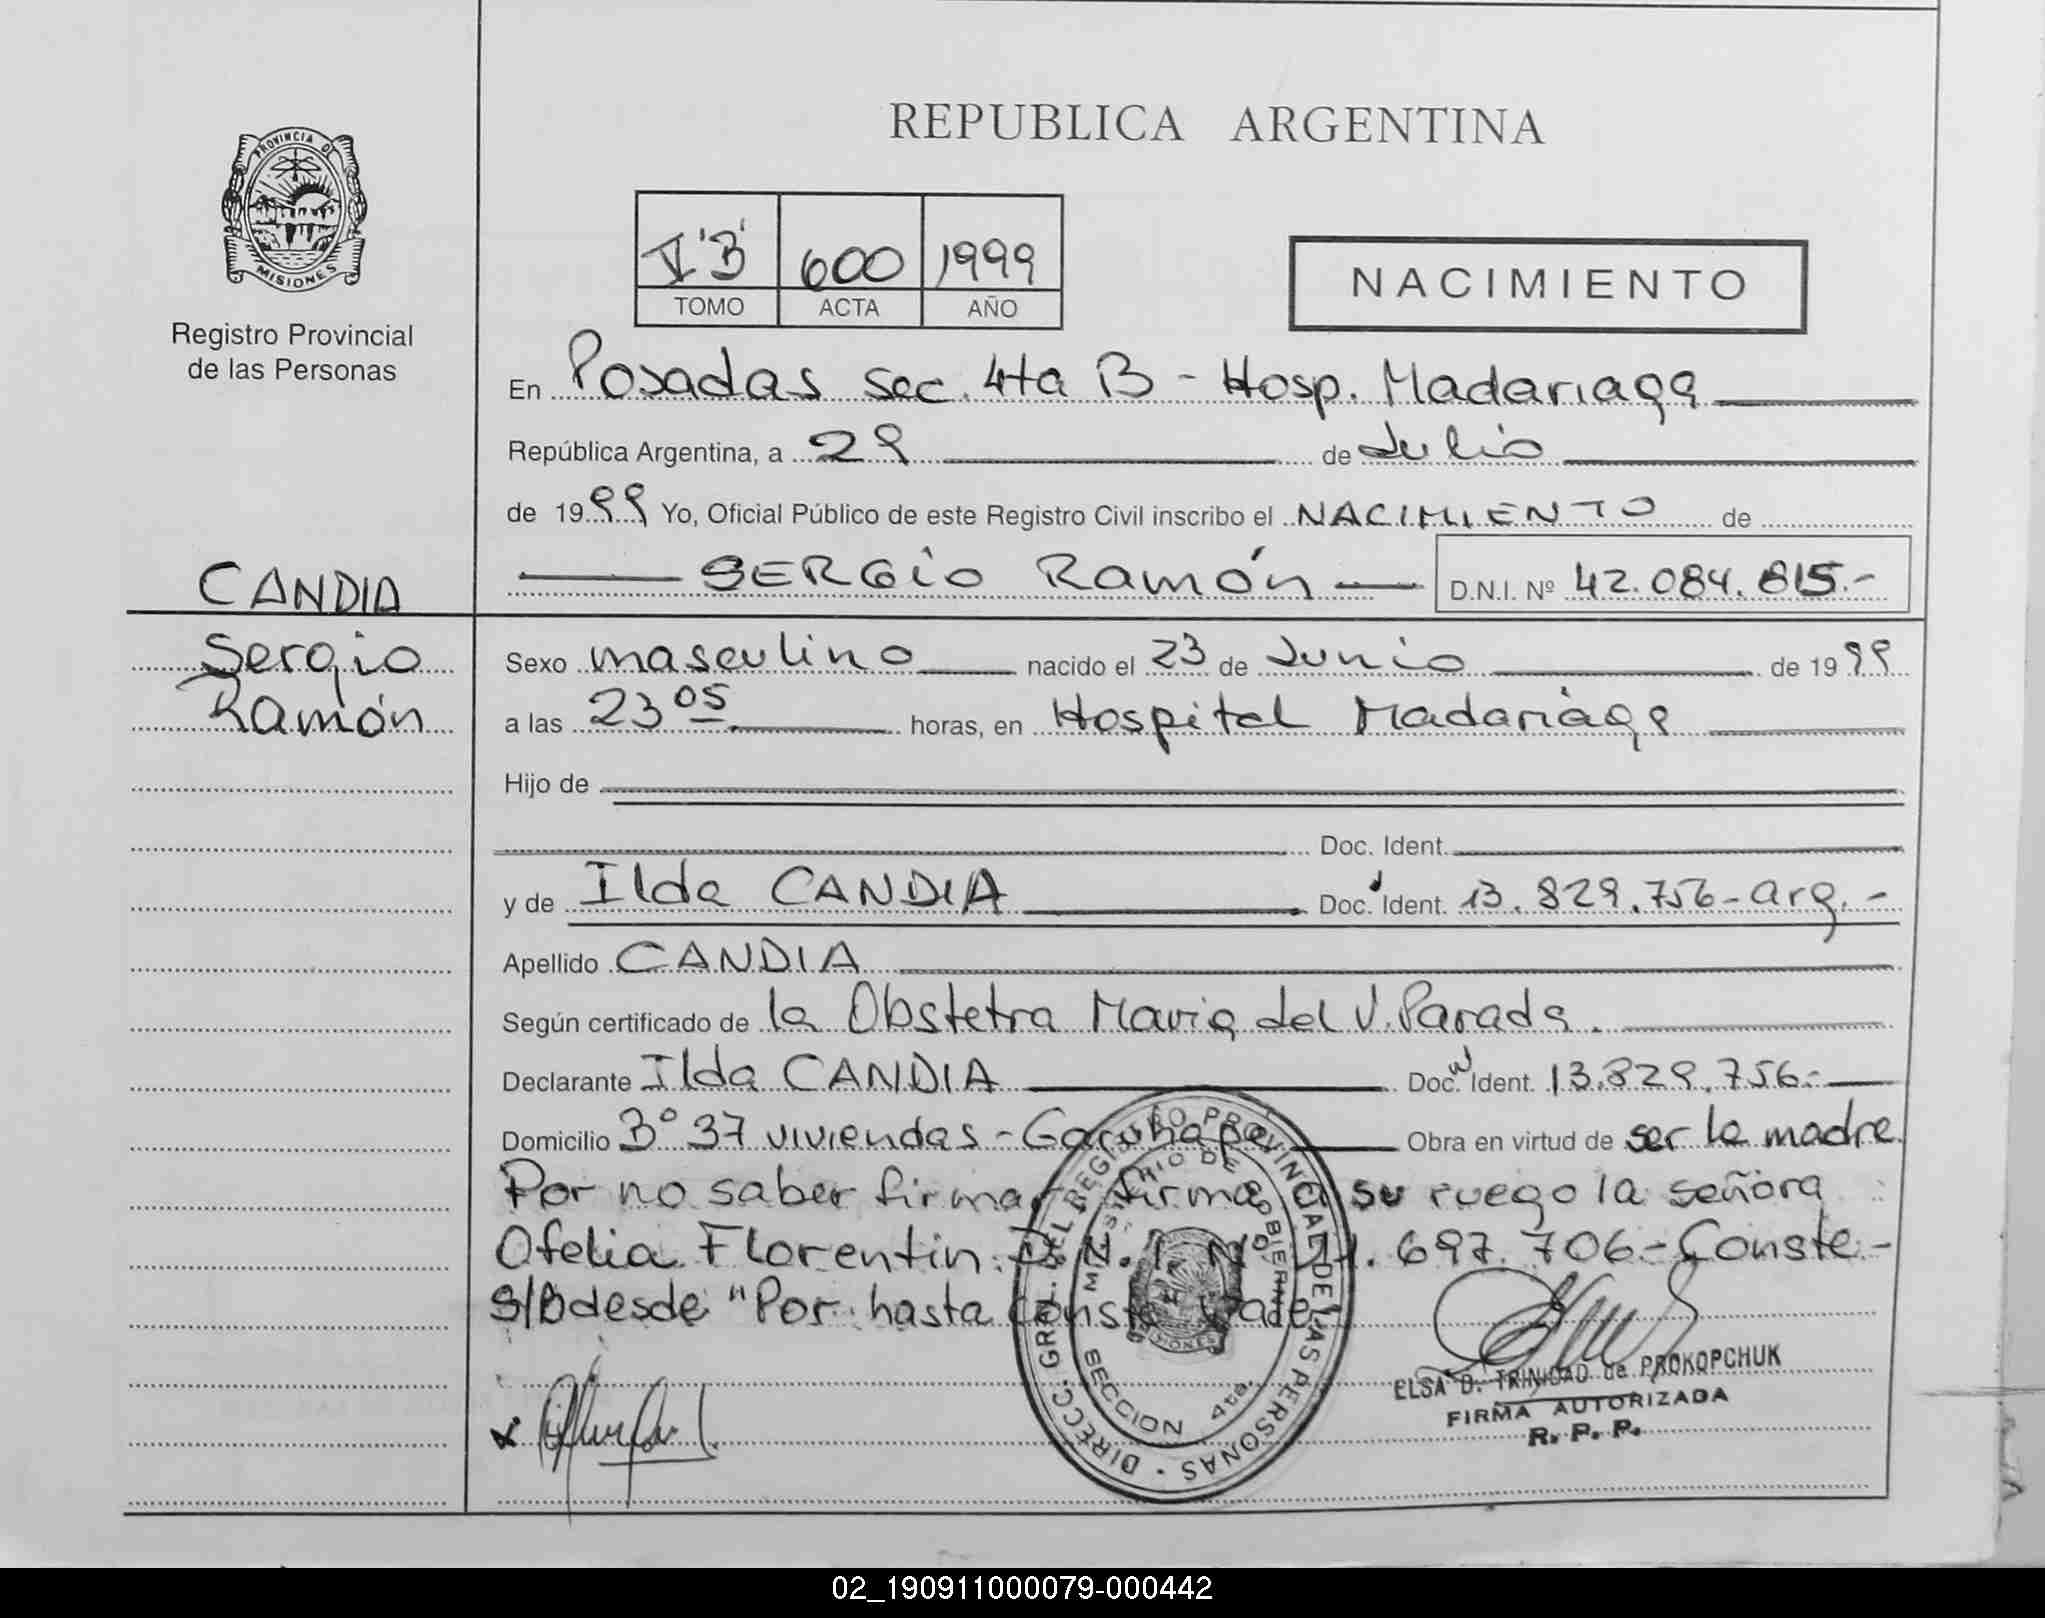 REPUBLICA ARGENTINA
PROVINCIA DE
MISIONES
Registro Provincial
de las Personas
V 'B' 600 1999
TOMO ACTA AÑO
NACIMIENTO
En Posadas sec. 4ta B - Hosp. Madariaga
República Argentina, a 29 de Julio
de 1999 Yo, Oficial Público de este Registro Civil inscribo el NACIMIENTO de
SERGIO Ramón D.N.I. Nº 42.084.815.-
CANDIA
Sergio
Ramón
Sexo masculino nacido el 23 de Junio de 1999
a las 23 05 horas, en Hospital Madariaga
Hijo de
Doc. Ident.
y de Ilda CANDIA Doc. Ident. 13.829.756-arg.-
Apellido CANDIA
Según certificado de la Obstetra Maria del V. Parada.
Declarante Ilda CANDIA Doc. Ident. 13.829.756.-
Domicilio Bº 37 viviendas - Garuhape Obra en virtud de ser la madre
Por no saber firmar firma a su ruego la señora
Ofelia Florentin D.N.I. Nº 697.706-Conste.-
S/B desde "Por hasta Conste Vale
DIRECC. GRAL. DEL REGISTRO PROVINCIAL DE LAS PERSONAS
MINISTERIO DE GOBIERNO
MISIONES
SECCION 4ta.
ELSA D. TRINIDAD de PROKOPCHUK
FIRMA AUTORIZADA
R. P. P.
02_190911000079-000442